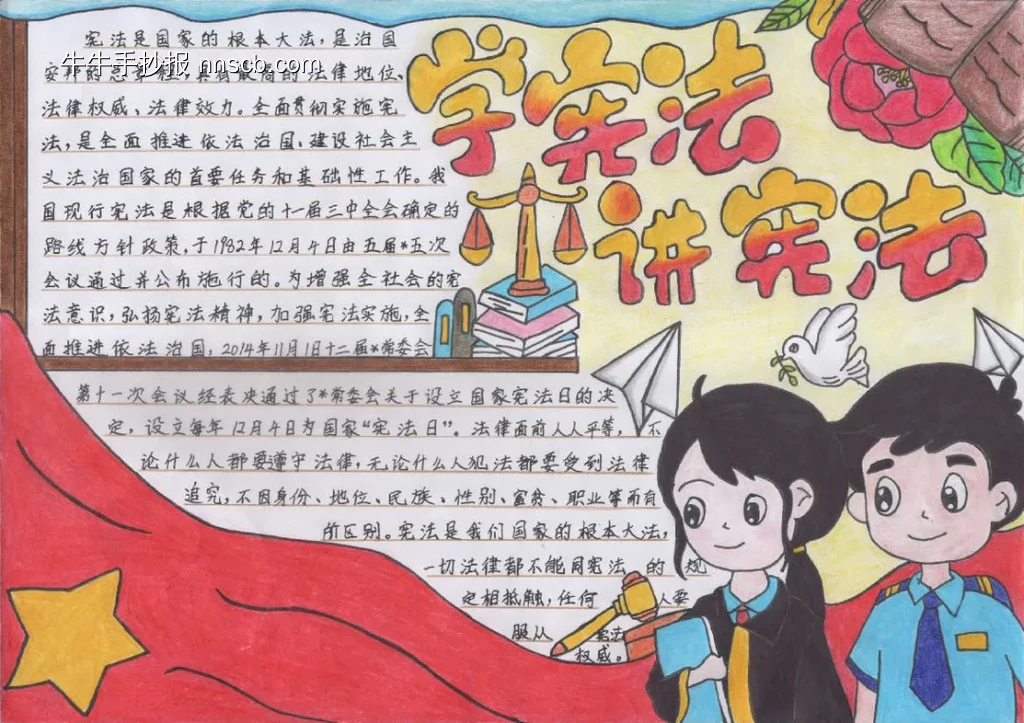 学宪法
讲宪法
牛牛手抄报 nnscb.com
宪法是国家的根本大法，是治国
安邦的总章程，具有最高的法律地位、
法律权威、法律效力。全面贯彻实施宪
法，是全面推进依法治国、建设社会主
义法治国家的首要任务和基础性工作。我
国现行宪法是根据党的十一届三中全会确定的
路线方针政策，于1982年12月4日由五届*五次
会议通过并公布施行的。为增强全社会的宪
法意识，弘扬宪法精神，加强宪法实施，全
面推进依法治国，2014年11月1日十二届*常委会
第十一次会议经表决通过了*常委会关于设立国家宪法日的决
定，设立每年12月4日为国家“宪法日”。法律面前人人平等，不
论什么人都要遵守法律，无论什么人犯法都要受到法律
追究，不因身份、地位、民族、性别、富贫、职业等而有
所区别。宪法是我们国家的根本大法，
一切法律都不能同宪法的规
定相抵触，任何人要
服从宪法
权威。